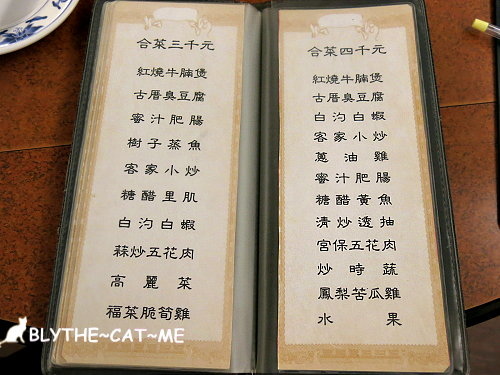 合菜三千元
紅燒牛腩煲
古厝臭豆腐
蜜汁肥腸
樹子蒸魚
客家小炒
糖醋里肌
白汋白蝦
蒜炒五花肉
高麗菜
福菜脆筍雞
合菜四千元
紅燒牛腩煲
古厝臭豆腐
白汋白蝦
客家小炒
蔥油雞
蜜汁肥腸
糖醋黃魚
清炒透抽
宮保五花肉
炒時蔬
鳳梨苦瓜雞
水果
BLYTHE~CAT~ME